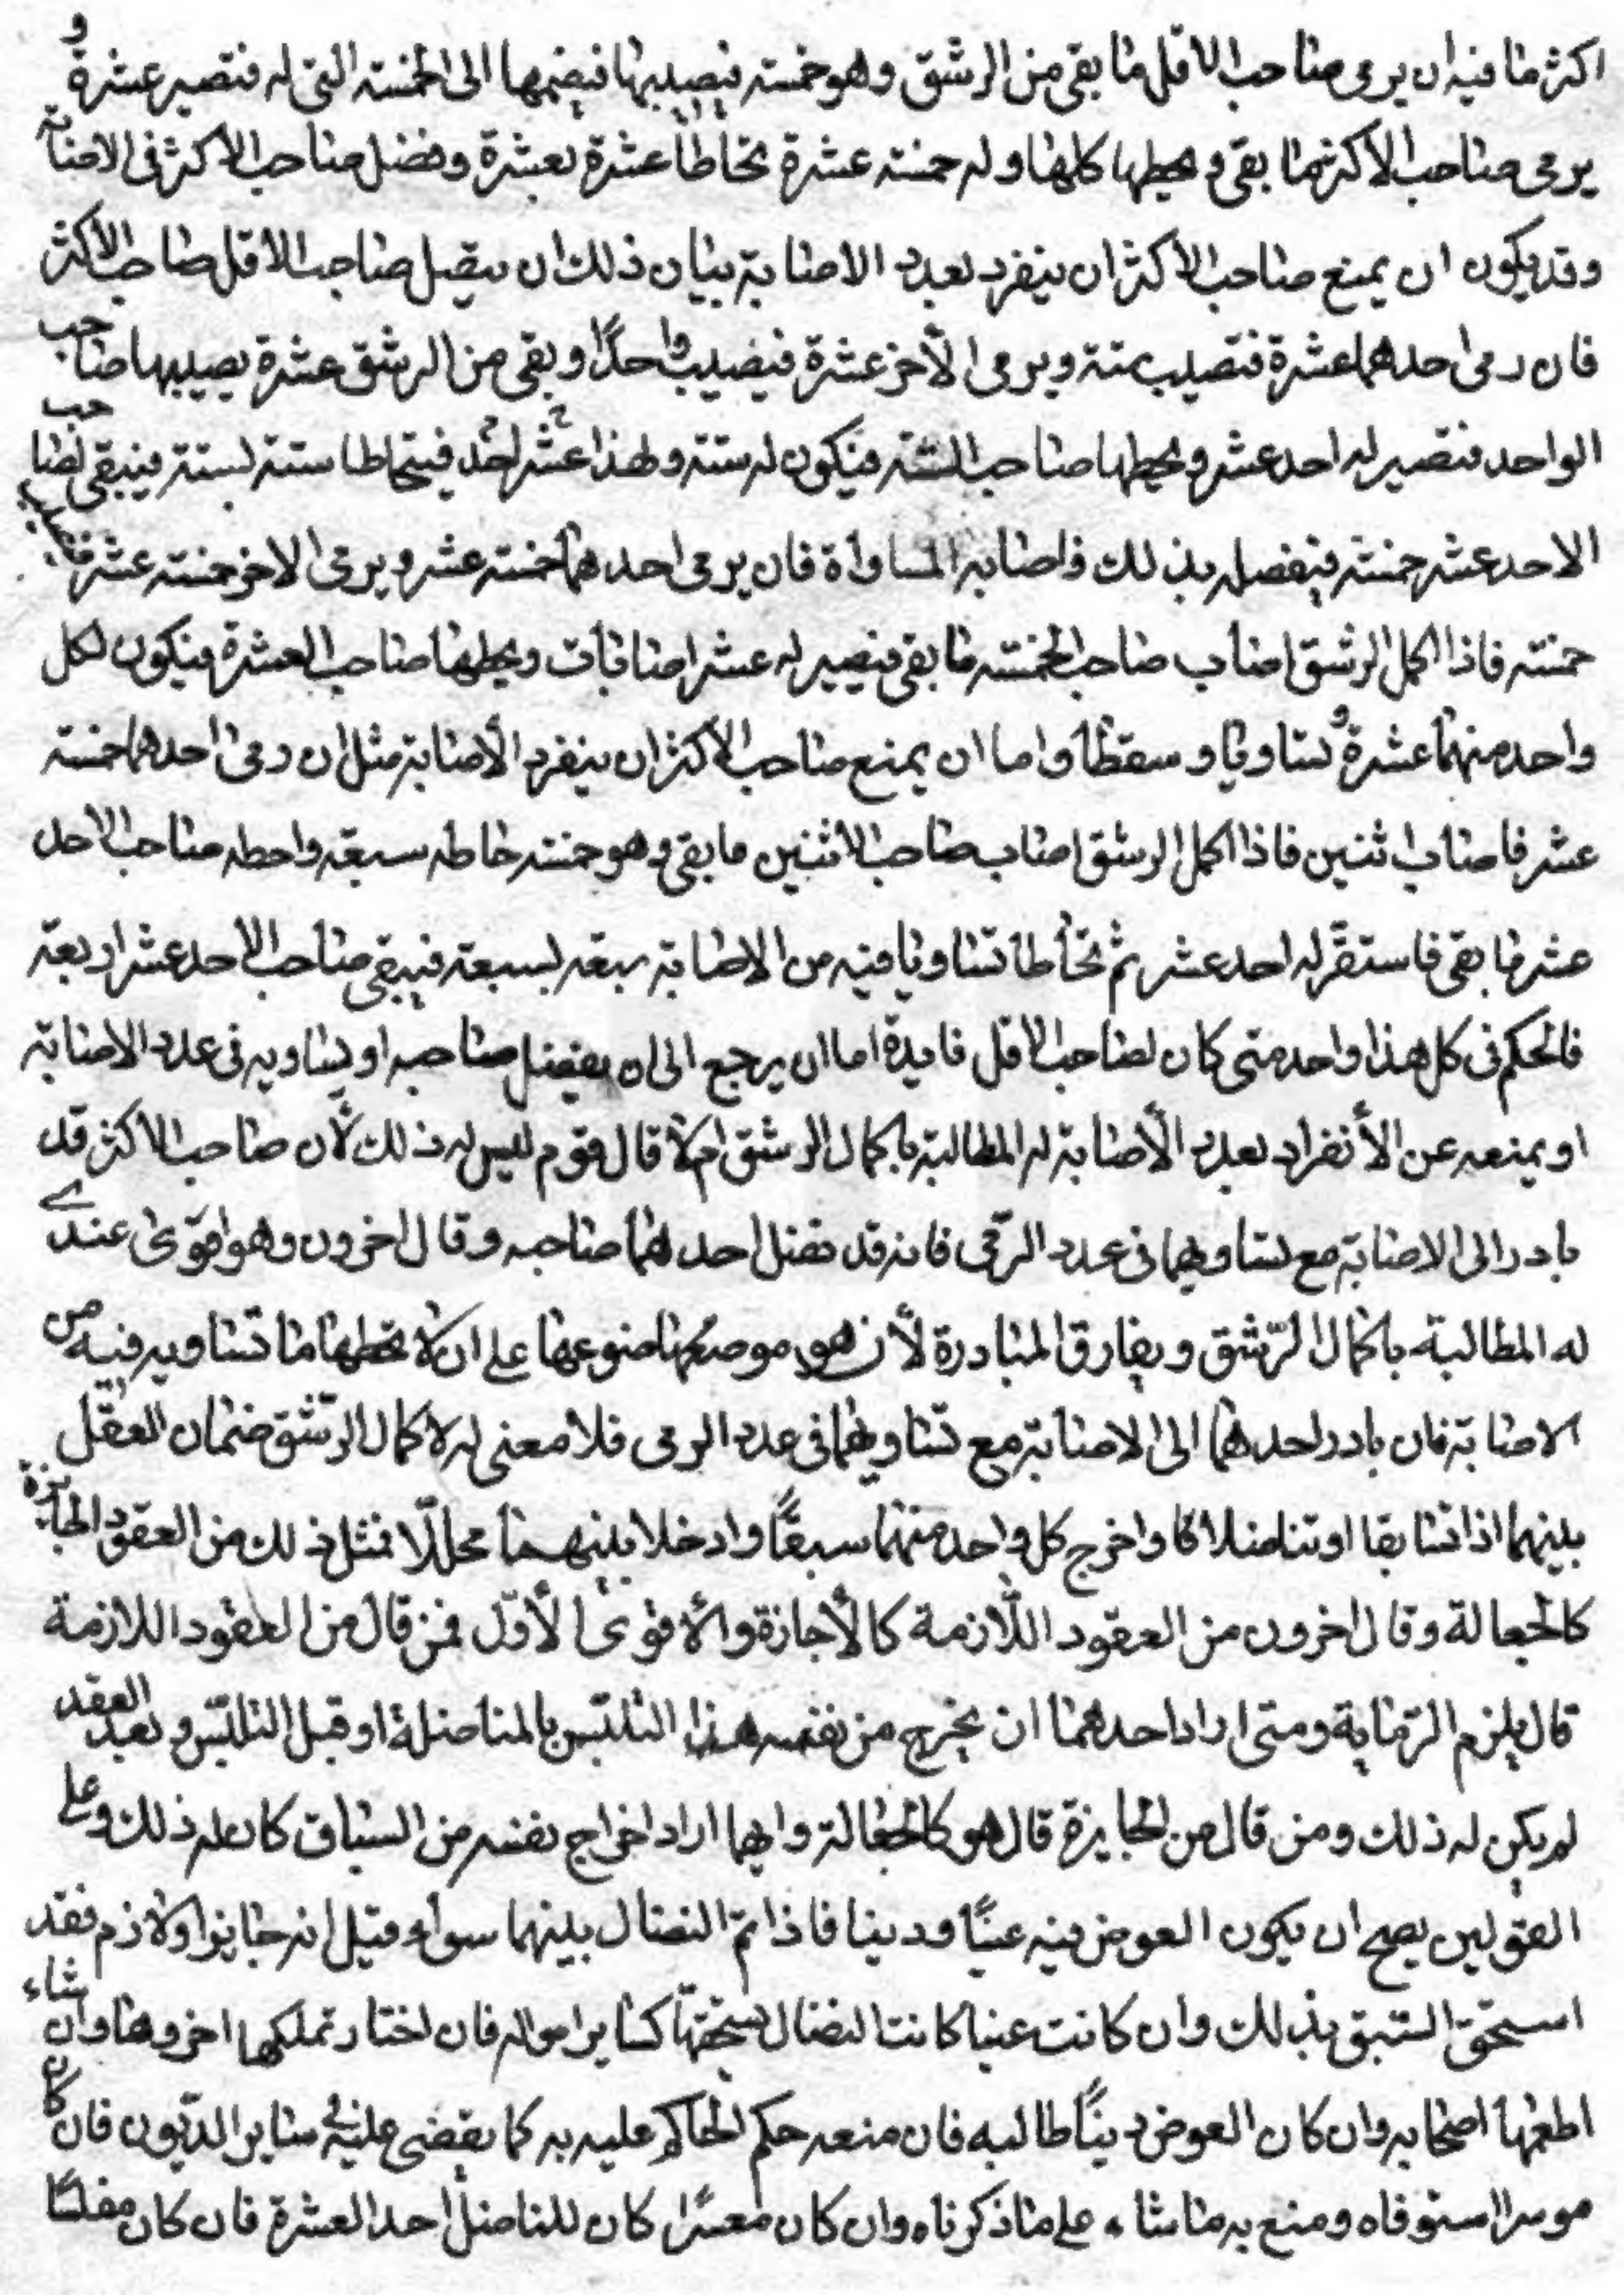 اكثر ما فيه ان يرمى صاحب الاقل ما بقى من الرشق وهو خمسة فيصيبها فيضمها الى الخمسة التى له فتصير عشرة و
يرمى صاحب الاكثر ما بقى ويحطها كلها وله خمسة عشرة تحاطا عشرة بعشرة وفضل صاحب الاكثر فى الاصابة
وقد يكون ان يمنع صاحب الاكثر ان ينفرد بعدد الاصابة بيان ذلك ان صاحب الاقل صاحب الاكثر
فان رمى احدهما عشرة فتصيب ستة ويرمى الأخر عشرة فيصيب واحدًا وبقى من الرشق عشرة يصيبها صاحب
الواحد فتصير له احد عشر ويحطها صاحب الستة فيكون له ستة ولهذا احد عشر فيتحاطا ستة بستة فيبقى لصاحب
الاحد عشر خمسة فيفضله بذلك واصابه المساواة فان يرمى احدهما خمسة عشر ويرمى الاخر خمسة عشر فيصيب
خمسة فاذا اكمل الرشق اصاب صاحب الخمسة ما بقى فيصير له عشر اصابات ويحطها صاحب العشرة فيكون لكل
واحد منهما عشرة وتساويا وسقطا واما ان يمنع صاحب الاكثر ان ينفرد الأصابة مثل ان رمى احدهما خمسة
عشر فاصاب اثنين فاذا اكمل الرشق اصاب صاحب الاثنين ما بقى وهو خمسة خاطه سبعة واحطه صاحب الاحد
عشر ما بقى فاستقرّ له احد عشر ثم تحاطا تساويا فيه من الاصابة سبعة بسبعة فيبقى صاحب الاحد عشر اربعة
فالحكم فى كل هذا واحد متى كان لصاحب الاقل فايدة اما ان يرجع الى ان يفضل صاحبه او يساويه فى عدد الاصابة
او يمنعه عن الأنفراد بعدد الأصابة له المطالبة باكمال الرشق ام لا قال قوم ليس له ذلك لأن صاحب الاكثر قد
بادر الى الاصابة مع تساويهما فى عدد الرّمى فانه قد نضل احدهما صاحبه وقال اخرون وهو اقوى عندى
له المطالبة باكمال الرّشق ويفارق المبادرة لأن موضوعها على ان لا تحطها ما تساويه فيه من
الاصابة فان بادر احدهما الى الاصابة مع تساويهما فى عدد الرمى فلا معنى له لاكمال الرّشق ضمان العقل
بينهما اذا تسابقا او تناضلا كا واخرج كل واحد منهما سبقًا وادخلا بينهما محللّا فمثل ذلك من العقود الجايزة
كالجعالة وقال اخرون من العقود اللّازمة كالأجازة والأقوى الأوّل فمن قال من العقود اللازمة
قال يلزم الرّماية ومتى اراد احدهما ان يخرج من نفسه هذا التلبّس بالمناضلة او قبل التلبّس وبعد العقد
لم يكن له ذلك ومن قال من الجايزة قال هو كالجعالة وايهما اراد اخراج نفسه من السباق كان له ذلك وعلى
القولين يصح ان يكون العوض فيه عينًا ودينا فاذا تمّ النضال بينهما سواء قيل انه جايزا ولازم فقد
استحق السّبق بذلك وان كانت عينا كانت النضال يستحقّها كساير امواله فان اختار تملكها اخروها وان شاء
اطعمها اصحابه وان كان العوض دينًا طالبه فان منعه حكم الحاكم عليه به كما يقضى عليه فى ساير الديون فان كان
موسرا استوفاه ومنع به ما شاء على ما ذكرناه وان كان معسرًا كان للناضل احد العشرة فان كان مفلسًا